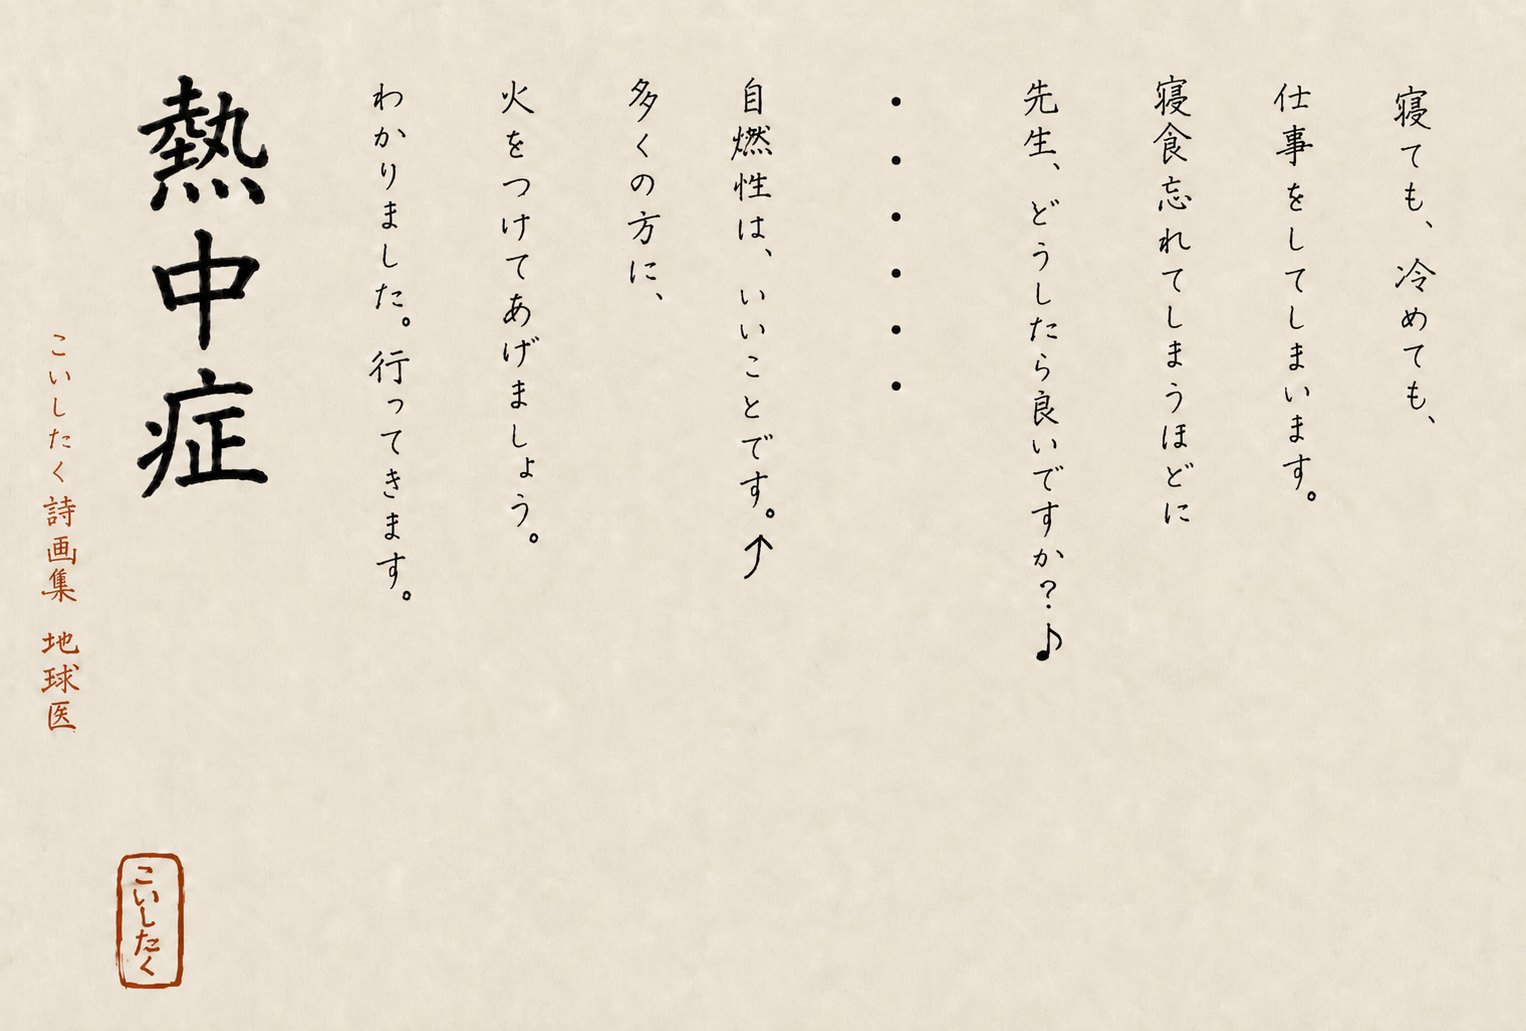 寝ても、冷めても、
仕事をしてしまいます。
寝食忘れてしまうほどに
先生、どうしたら良いですか？♪
・・・・・・
自燃性は、いいことです。↑
多くの方に、
火をつけてあげましょう。
わかりました。行ってきます。
熱中症
こいしたく詩画集 地球医
こいしたく